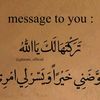 message to you :
تَركتُها لَكَ يَا اللّٰه
فَعَوِّضْنِي خَيْراً وَيَسِّرْ لِي أَمْرِي